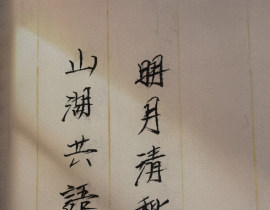 明月清秋
山湖共語